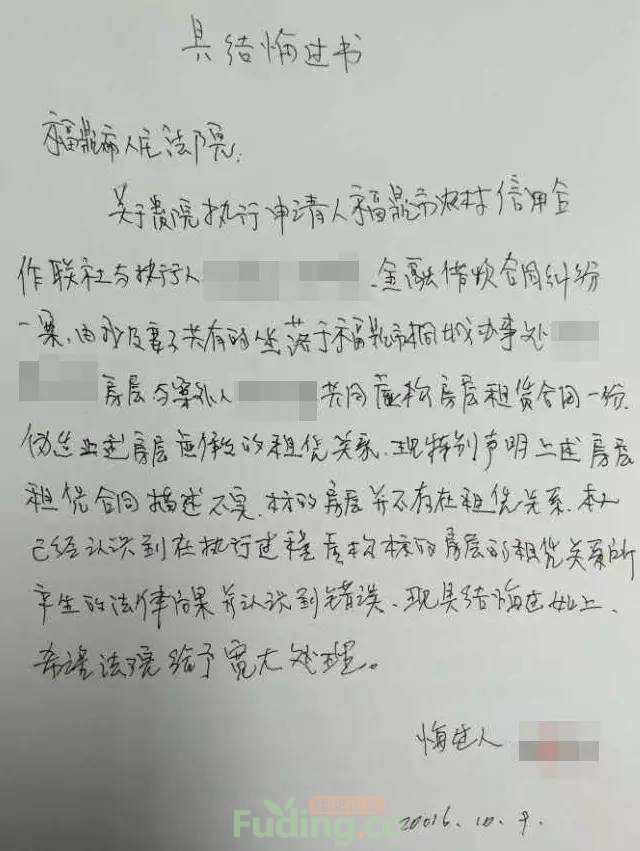 具结悔过书
福鼎市人民法院:
关于贵院执行申请人福鼎市农村信用合
作联社与执行人 、金融借款合同纠纷
一案,由我及妻子共有的坐落于福鼎市桐城办事处
房屋与案外人 共同虚构房屋租赁合同一份,
伪造上述房屋虚假的租赁关系,现特别声明上述房屋
租赁合同描述不实,标的房屋并不存在租赁关系,本人
已经认识到在执行过程虚构标的房屋的租赁关系所
产生的法律后果并认识到错误、现具结悔过如上,
希望法院给予宽大处理。
悔过人
20016.10.9.
Fuding.co